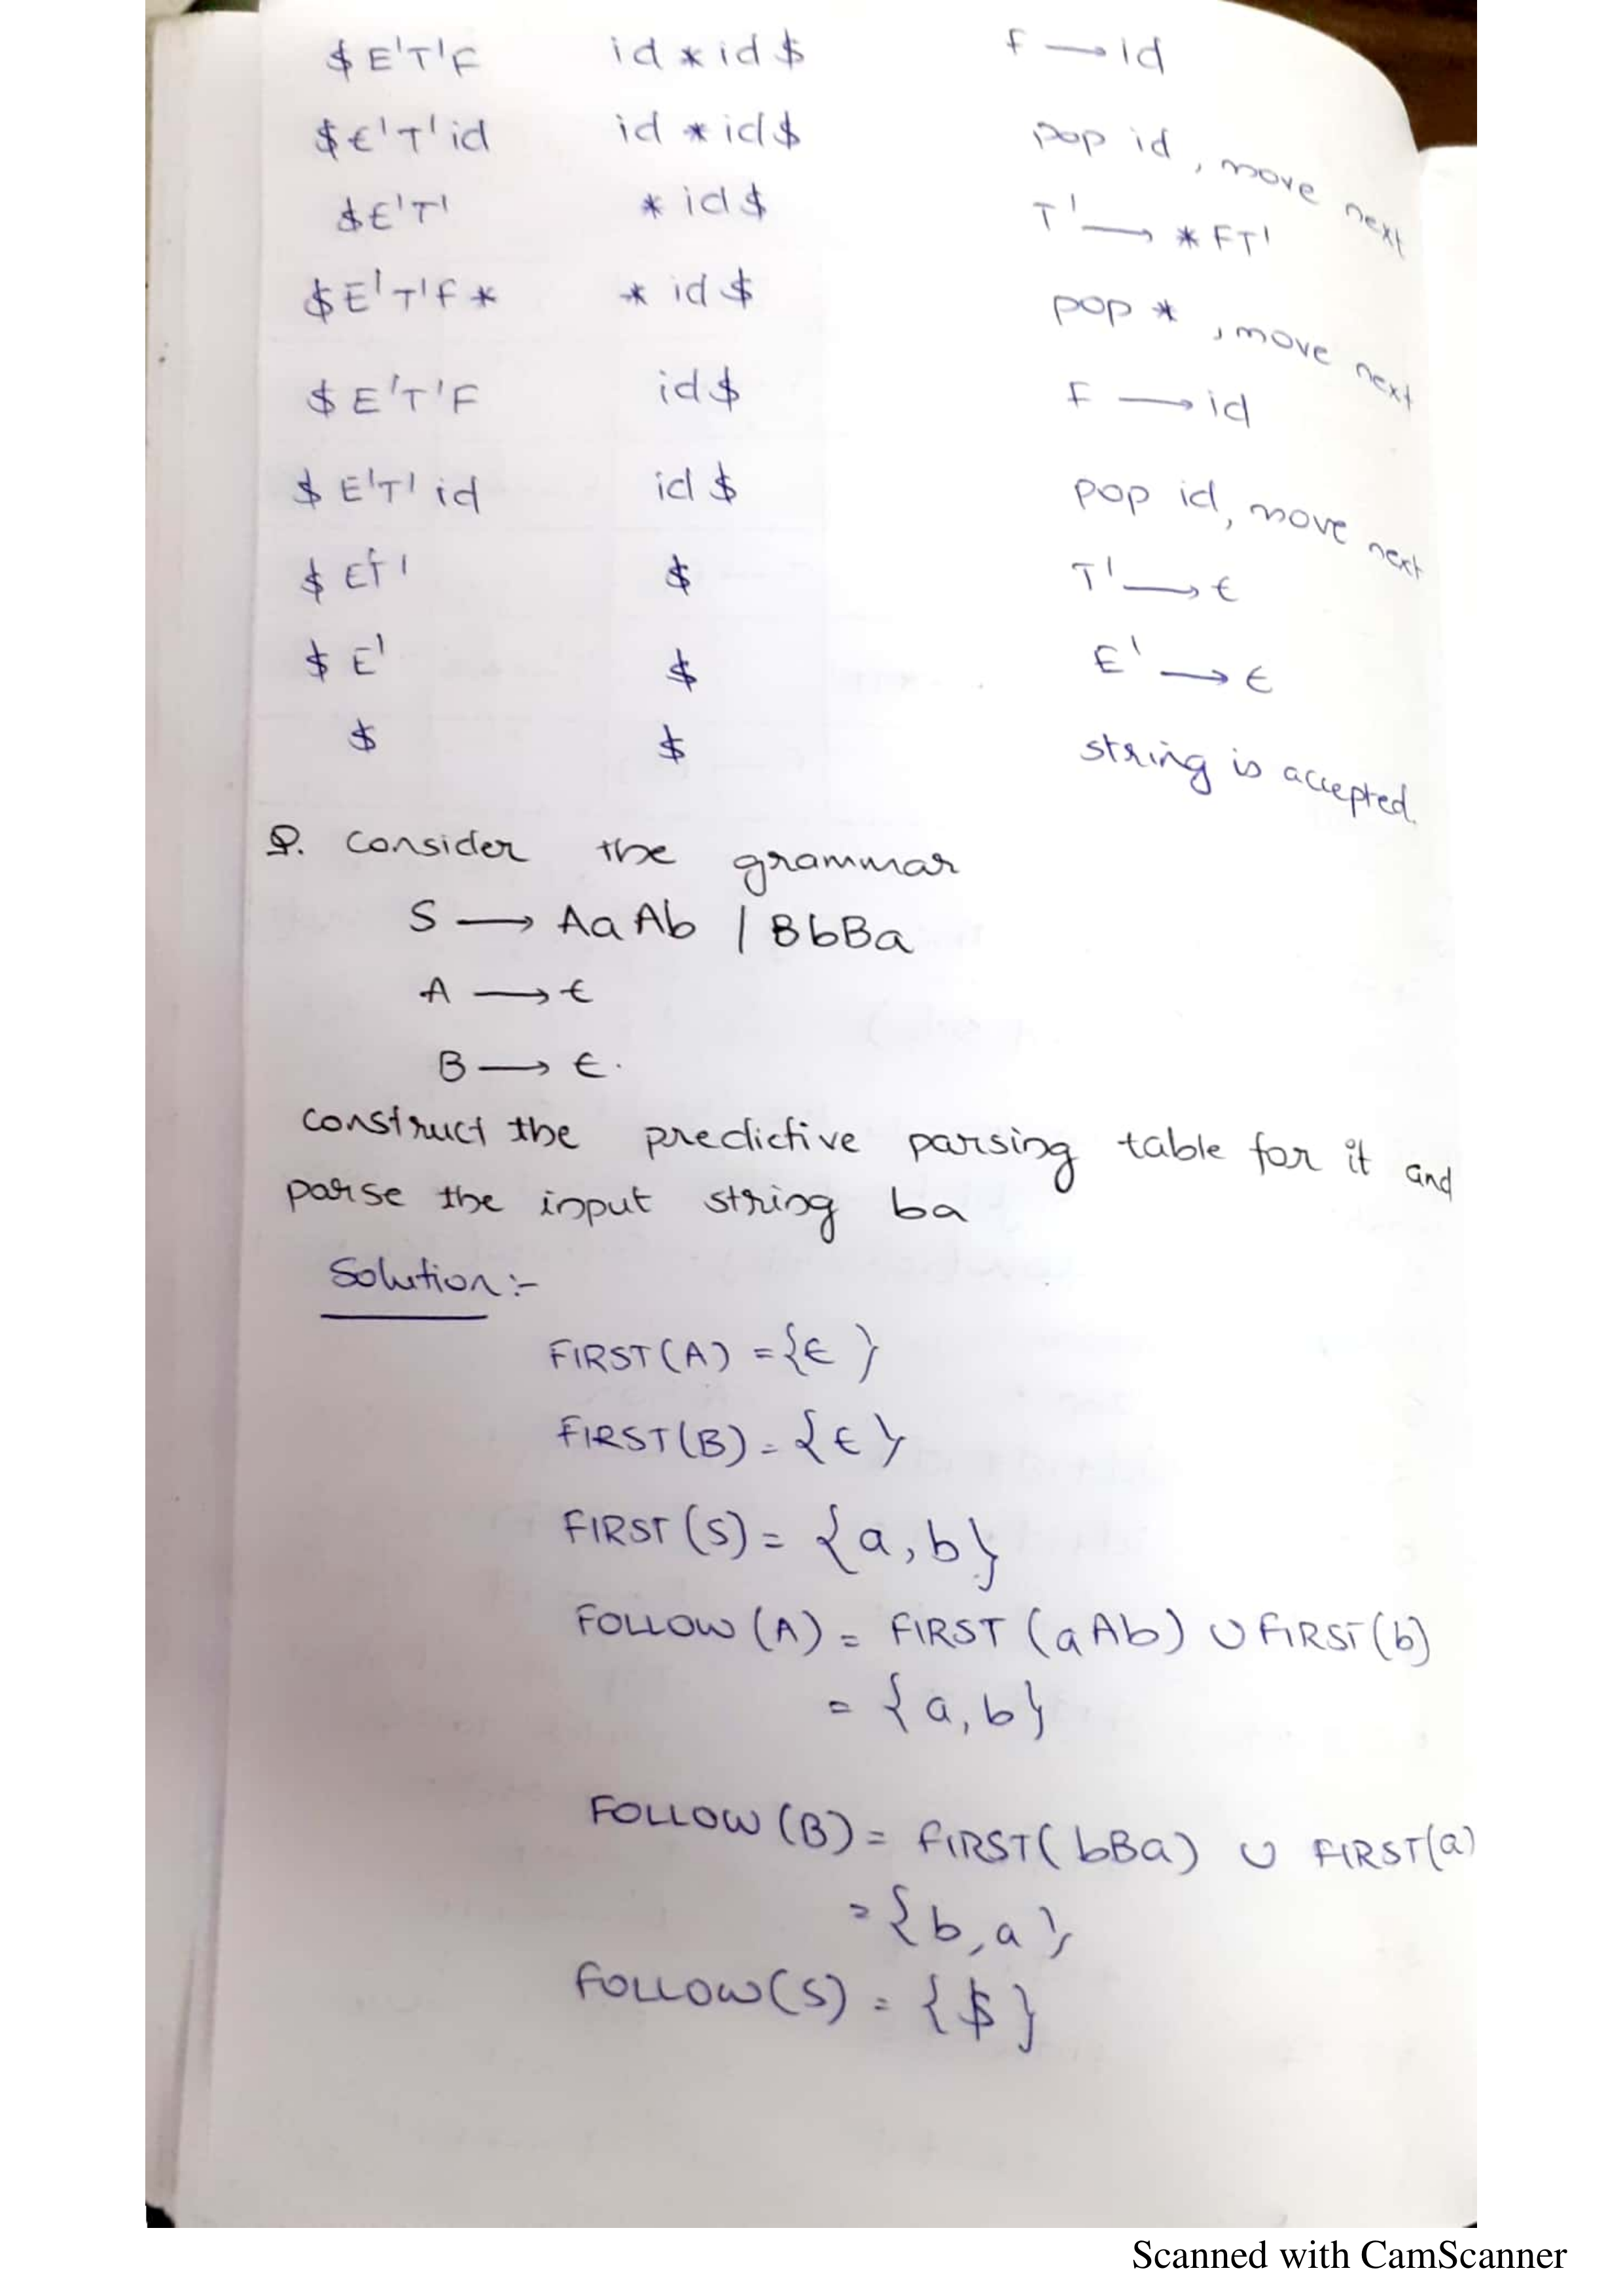 $ E'T'F id * id $ F → id
$ E'T' id id * id $ pop id, move next
$ E'T' * id $ T' → * FT'
$ E'T'F * * id $ pop *, move next
$ E'T'F id $ F → id
$ E'T' id id $ pop id, move next
$ E'T' $ T' → ϵ
$ E' $ E' → ϵ
$ $ string is accepted.
Q. Consider the grammar
S → AaAb | BbBa
A → ϵ
B → ϵ.
construct the predictive parsing table for it and
parse the input string ba
Solution :-
FIRST (A) = {ϵ}
FIRST (B) = {ϵ}
FIRST (S) = {a, b}
FOLLOW (A) = FIRST (aAb) ∪ FIRST (b)
= {a, b}
FOLLOW (B) = FIRST (bBa) ∪ FIRST (a)
= {b, a}
FOLLOW (S) = {$}
Scanned with CamScanner